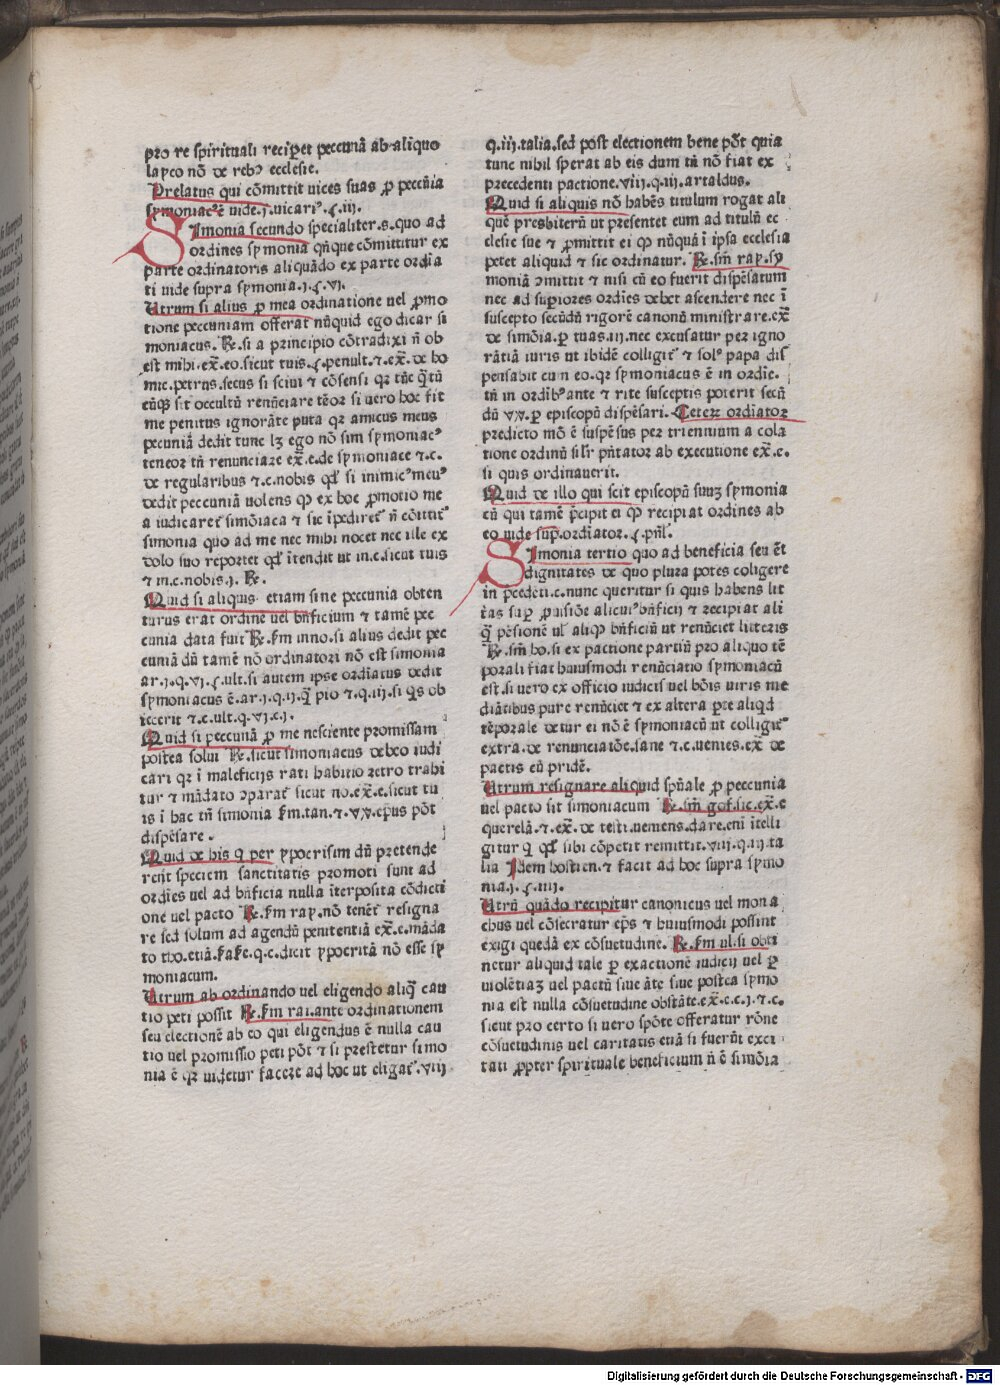 pro re spirituali recipet peccuniā ab aliquo
layco nō de rebꝰ ecclesie.
Prelatus qui cōmittit uices suas ꝑ peccūia
symoniacꝰ ē uide.ȷ.uicariꝰ.ꝭ.iii.
Simonia secundo specialiter.s.quo ad
ordines symonia qn̄que cōmittitur ex
parte ordinatoris aliquādo ex parte ordīa
ti uide supra symonia.ȷ.ꝭ.vȷ.
Utrum si alius ꝑ mea ordinatione uel ꝓmo
tione peccuniam offerat nūquid ego dicar si
moniacus. R̄.si a principio cōtradixi n̄ ob
est mihi.ex̄.eo.sicut tuis.ꝭ.penult.⁊.ex̄.de ho
mic.petrus.secus si sciui ⁊ cōsensi qꝛ tūc q̄tū
cūqꝫ sit occultū renūciare teneor si uero hoc fit
me penitus ignorāte puta qꝛ amicus meus
pecuniā dedit tunc lꝫ ego nō sim symoniacꝰ
teneor tn̄ renunciare ex̄.e.de symoniace ⁊.c.
de regularibus ⁊.c.nobis qđ si inimicꝰ meuꝰ
dedit peccuniā uolens ꝙ ex hoc ꝓmotio me
a iudicaret̉ simōiaca ⁊ sic īpediret̉ n̄ cōttit̉
simonia quo ad me nec mihi nocet nec ille ex
dolo suo reportet qđ ītendit ut in.c.sicut tuis
⁊ in.c.nobis.ȷ. R̄.
Quid si aliquis etiam sine peccunia obten
turus erat ordinē uel bn̄ficium ⁊ tamē pec
cunia data fuit R̄.ẜm inno.si alius dedit pec
cuniā dū tamē nō ordinatori nō est simonia
ar.ȷ.q.vȷ.ꝭ.ult.si autem ipse ordīatus dedit
symoniacus ē.ar.ȷ.q.ıȷ.q̄ pio ⁊.q.iii.si q̄s ob
iecerit ⁊.c.ult.q.vȷ.c.ȷ.
Quid si peccunā ꝑ me nesciente promissam
postea solui R̄.sicut simoniacus debeo iudi
cari qꝛ ī maleficijs rati habitio retro trahi
tur ⁊ mādato ꝯparat̉ sicut no.ex̄.e.sicut tu
is ī hac tn̄ simonia ẜm.tan.⁊.v̄v̄.ep̄us pōt
dispēsare.
Quid de his q̄ per ypocrisim dū pretende
rent speciem sanctitatis promoti sunt ad
ordīes uel ad bn̄ficia nulla īterposita cōdicti
one uel pacto R̄.ẜm ray.nō tenēt̉ resigna
re sed solum ad agendū penitentiā ex̄.e.māda
to tho.etiā.ẜaẜe.q.c.dicit ypocritā nō esse sy
moniacum.
Utrum ab ordinando uel eligendo aliq̄ cau
tio peti possit R̄.ẜm rai.ante ordinationem
seu electionē ab eo qui eligendus ē nulla cau
tio uel promissio peti pōt ⁊ si prestetur simo
nia ē qꝛ uidetur facere ad hoc ut eligat̉.viij
q.iij.talia.sed post electionem bene pōt quia
tunc nihil sperat ab eis dum tn̄ nō fiat ex
precedenti pactione.viij.q.iij.artaldus.
Quid si aliquis nō habēs titulum rogat ali
quē presbiterū ut presentet eum ad titulū ec
clesie sue ⁊ ꝓmittit ei ꝙ nūquā ī ipsa ecclesia
petet aliquid ⁊ sic ordinatur. R̄.ẜm ray.sy
moniā ꝯmittit ⁊ nisi cū eo fuerit dispēsatum
nec ad suꝑiores ordīes debet ascendere nec ī
suscepto secūdū rigorē canonū ministrare.ex̄
de simōia.ꝑ tuas.iij.nec excusatur per igno
rātiā iuris ut ibidē colligit̉ ⁊ solꝰ papa dis
pensabit cum eo.qꝛ symoniacus ē in ordīe.
tn̄ in ordībꝰ ante ⁊ rite susceptis poterit secū
dū v̄v̄.ꝑ episcopū dispēsari. Ceterꝫ ordīator
predicto mō ē suspēsus per triennium a cola
tione ordinū silr̄ pn̄tator ab executione ex̄.e.
si quis ordinauerit.
Quid de illo qui scit episcopū suuꝫ symonia
cū qui tamē p̄cipit ei ꝙ recipiat ordines ab
eo uide sup̄.ordīator.ꝭ.pn̄l̉.
Simonia tertio quo ad beneficia seu et̄
dignitates de quo plura potes coligere
in p̄cedēti.c.nunc queritur si quis habens lit
t̄as suꝑ ꝓuisiōe alicuiꝰ bn̄ficij ⁊ recipiat ali
q̄ pēsionē ul̉ aliqꝫ bn̄ficiū ut renūciet litteris
R̄.ẜm ho.si ex pactione partiū pro aliquo tē
porali fiat huiusmodi renūciatio symoniacū
est.si uero ex officio iudicis uel bōis uiris me
diātibus pure renūciet ⁊ ex altera parte aliqd
tēporale detur ei nō ē symoniacū ut colligit̉
extra.de renunciatiōe.sane ⁊.c.uenies.ex̄ de
pactis cū pridē.
Utrum resignare aliquid sp̄uale ꝑ peccunia
uel pacto sit simoniacum R̄.ẜm gof.sic.ex̄.e
querelā.⁊.ex̄.de testi.ueniens.dare.eni ītelli
gitur q̄ qđ sibi cōpetit remittit.viij.q.iij.ta
lia Idem hostien.⁊ facit ad hoc supra symo
nia.ȷ.ꝭ.iiij.
Utrū quādo recipitur canonicus uel mona
chus uel cōsecratur ep̄s ⁊ huiusmodi possint
exigi quedā ex cōsuetudine. R̄.ẜm ul.si obti
netur aliquid tale ꝑ exactionē iudicij uel ꝑ
uiolētiaꝫ uel pactū siue āte siue postea symo
nia est nulla cōsuetudine obstāte.ex̄.e.c.ȷ.⁊.c.
sicut pro certo si uero spōte offeratur rōne
cōsuetudinis uel caritatis etiā si fuerūt exci
tati ꝓpter spirituale beneficium n̄ ē simōia
Digitalisierung gefördert durch die Deutsche Forschungsgemeinschaft - DFG